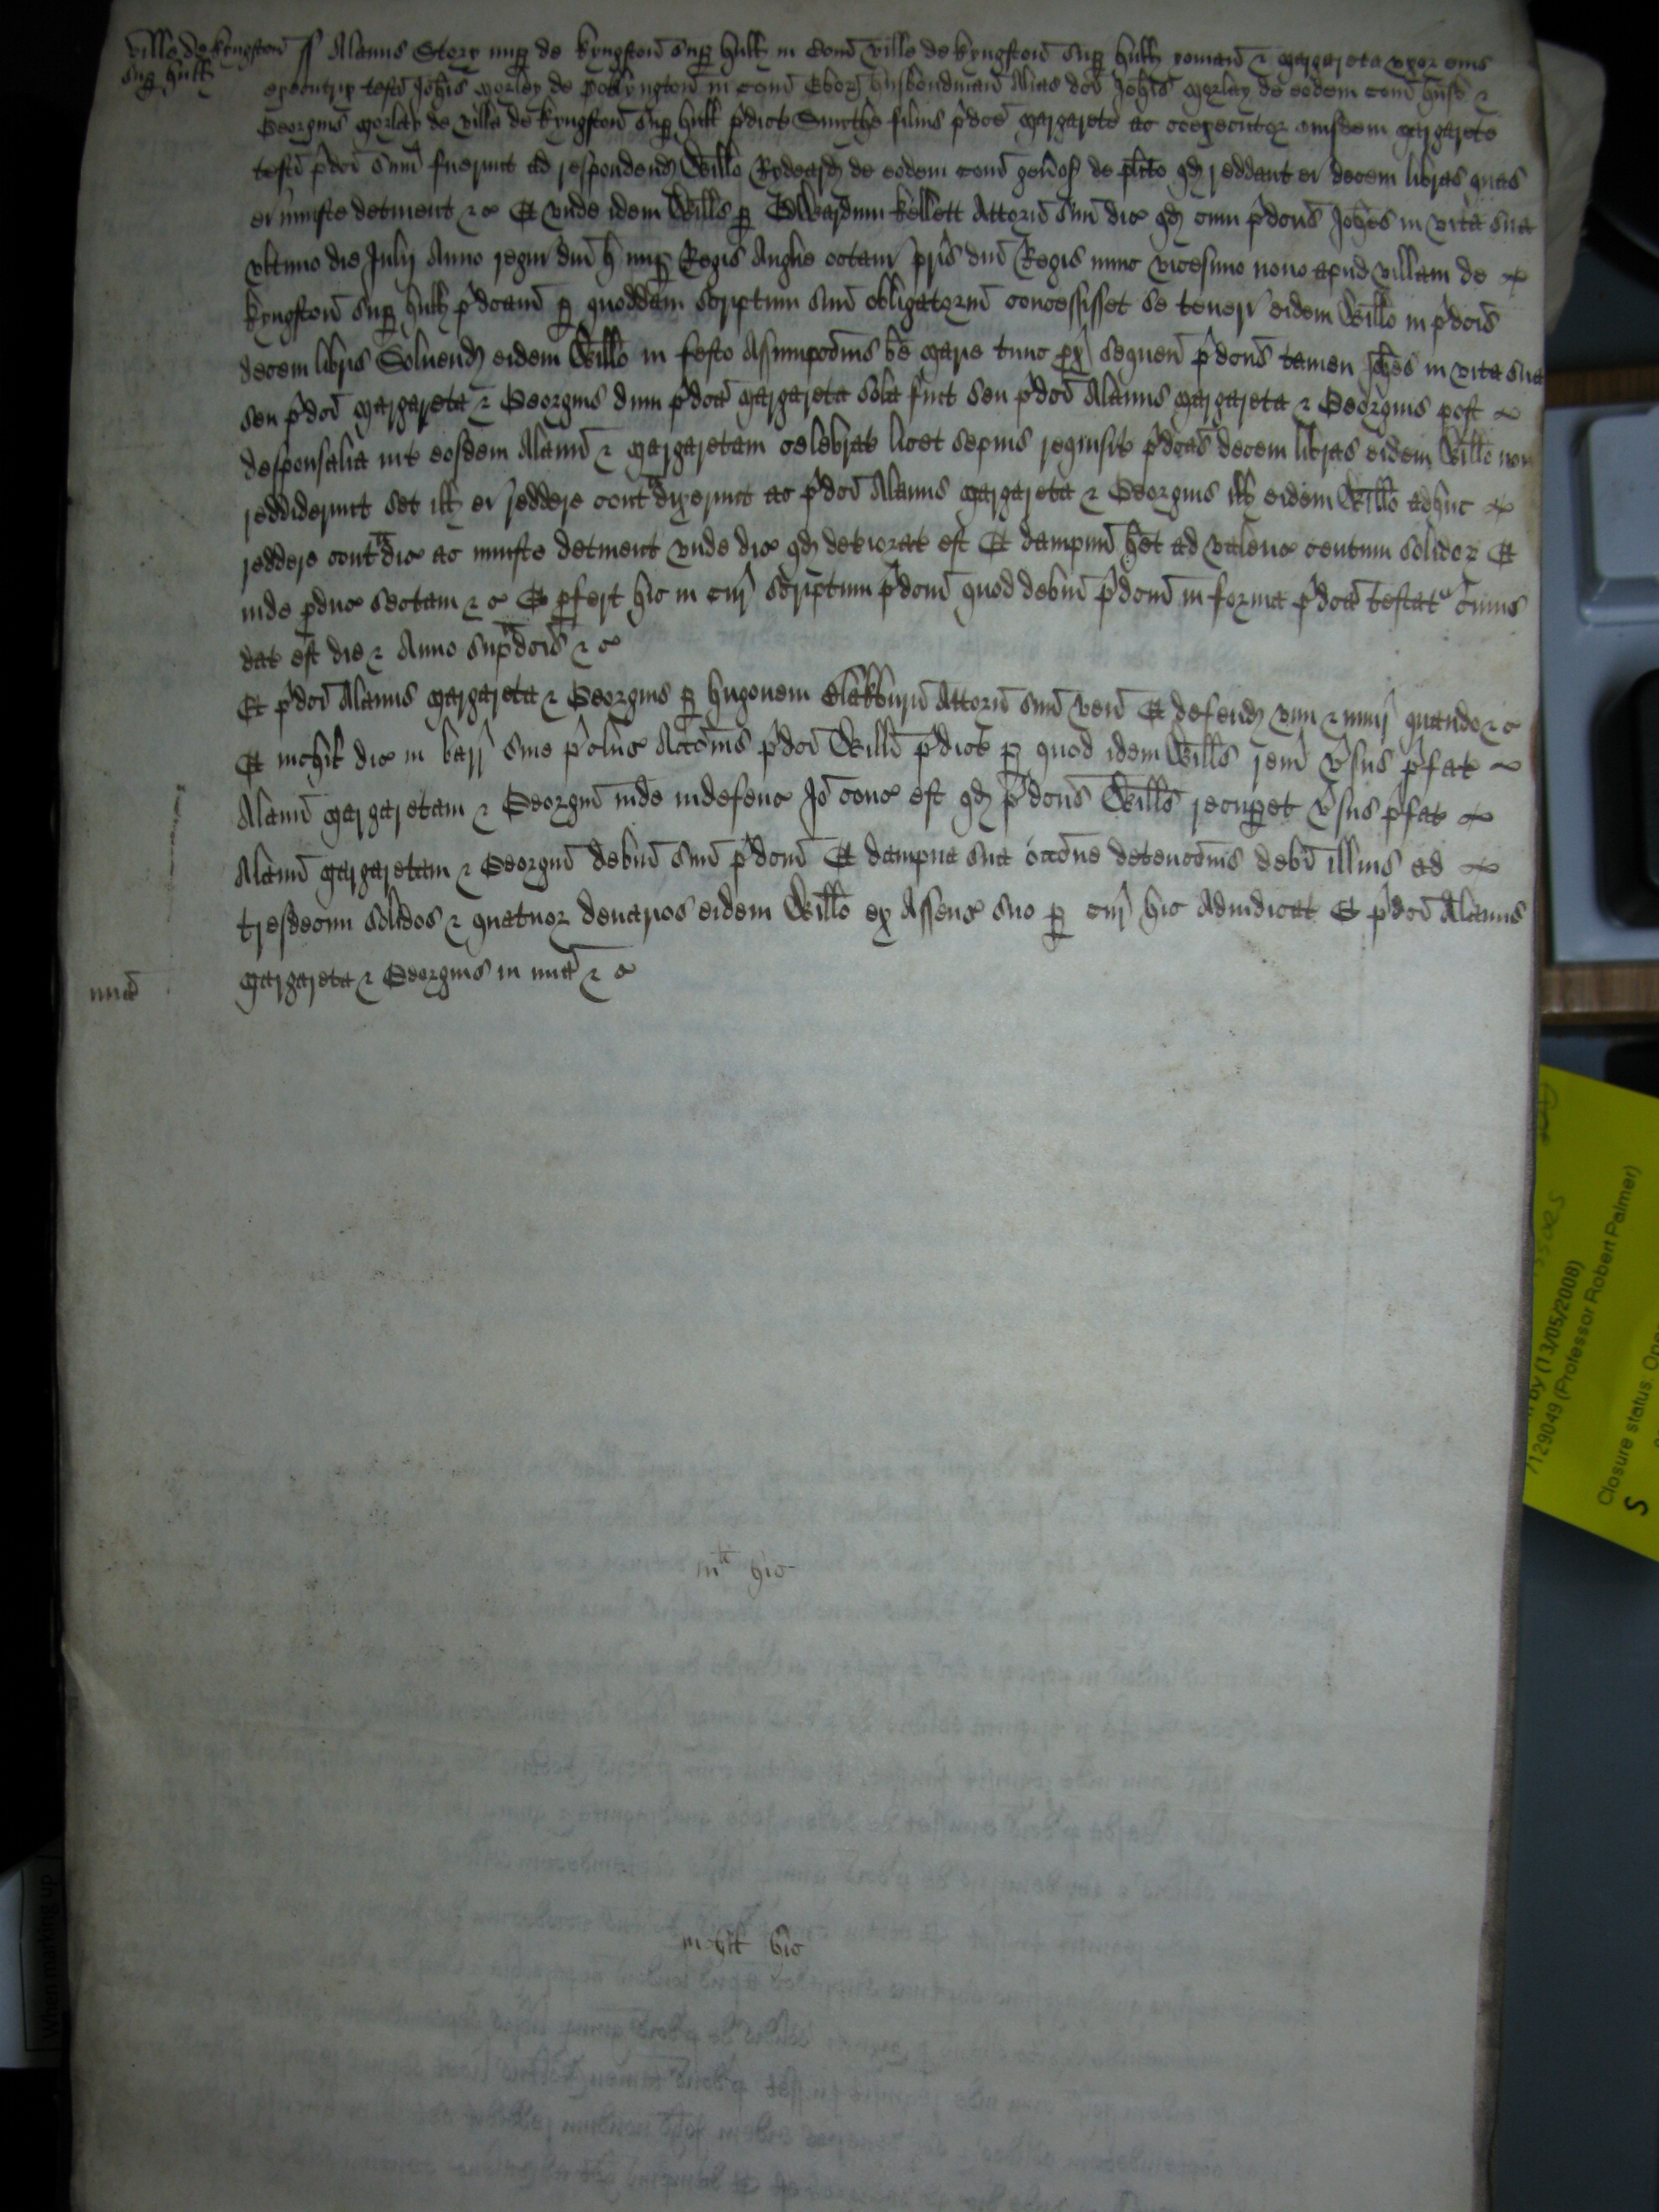 Ville de Kyngston̄ sup̱ Hull ss Alanus Story nup̱ de Kyngston̄ sup̱ Hull in Com̄ ville de Kyngston̄ sup̱ Hull yoman̄ & Margareta uxor eius
executrix testi Joh̄is Morley de Pokkyngton̄ in Com̄ Ebor husbondman̄ Alias dc̄i Joh̄is Morlay de eodem Com̄ husb &
Georgius Morlay de villa de Kyngston̄ sup̱ Hull p̄dict Smythe filius p̄dc̄e Margarete ac coexecutor eiusdem Margarete
testi p̄dc̄i sum̄ fuerunt ad respondend Will̄o Rydeard de eodem Com̄ gen̄os de pl̄ito qd reddant ei decem libras quas
ei iniuste detinent &c Et unde idem Will̄s p̱ Edwardum Kellett Attorn̄ suū dic̄ qd cum p̄dc̄us Joh̄es in vita sua
ultimo die Julij Anno regni dn̄i H nup̱ Regis Anglie octavi p̄ris dn̄i Regis nunc vicesimo nono apud villam de
Kyngston̄ sup̱ Hull p̄dc̄am p̱ quoddam scriptum suū obligatoriū concessisset se teneri eidem Will̄o in p̄dc̄is
decem libris Solvend eidem Will̄o in festo Assumpc̄onis b̄e Marie tunc p̱x̄ sequen̄ p̄dc̄us tamen Joh̄es in vita sua
seu p̄dc̄i Margareta & Georgius dum p̄dc̄a Margareta sola fuit seu p̄dc̄i Alanus Margareta & Georgius post
desponsalia int̄ eosdem Alanū & Margaretam celebrat licet sepius requisit p̄dc̄as decem libras eidem Will̄o non
reddiderunt set ill ei reddere cont^adixerunt ac p̄dc̄i Alanus Margareta & Georgius ill eidem Will̄o adhuc
reddere cont^adic̄ ac iniuste detinent unde dic̄ qd deteriorat est Et dampnū h̄et ad valenc̄ centum solidoꝝ Et
inde p̱duc̄ sectam &c Et p̱fert hic in cur̄ scriptum p̄dc̄m̄ quod debitū p̄dc̄m̄ in forma p̄dc̄a testat^r cuius
dat est die & Anno sup^adc̄is &c
Et p̄dc̄i Alanus Margareta & Georgius p̱ Hugonem Blakburn̄ Attorn̄ suū ven̄ Et defend vim & iniur̄ quando &c
Et nichil dic̄ in barr̄ sive p̄clus̄ Acc̄onis p̄dc̄i Will̄i p̄dict p̱ quod idem Will̄s rem̄ v̄sus p̄fat
Alanū Margaretam & Georgiū inde indefens̄ Jō cons̄ est qd p̄dc̄us Will̄s recup̱et v̄sus p̄fat
Alanū Margaretam & Georgiū debitū suū p̄dc̄m̄ Et dampna sua occ̄one detenc̄onis debi illius ad
tresdecim solidos & quatuor denarios eidem Will̄o ex Assens̄ suo p̱ cur̄ hic Adiudicat Et p̄dc̄i Alanus
Margareta & Georgius in mīa &c
mīa
nich hic
nichil hic
When marking up
by (13/05/2008)
7129049 (Professor Robert Palmer)
Closure status Open
S